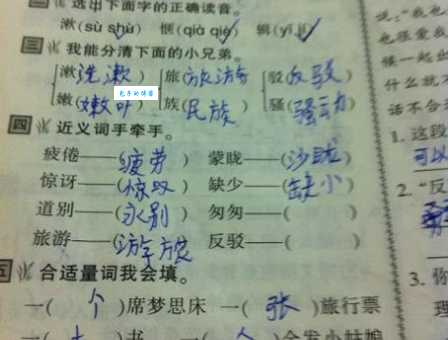 二 选出下面字的正确读音。
漱(sù shù) 惬(qià qiè) 缉(yī jī)
三 我能分清下面的小兄弟。
漱(洗漱) 旅(旅游) 驳(反驳)
嫩(嫩叶) 族(民族) 骚(骚动)
兔子的博客
四 近义词手牵手。
疲倦——(疲劳) 蒙眬——(
惊讶——(惊叹) 缺少——(缺小)
道别——(永别) 匆匆——( )
旅游——( 反驳——( )
五 合适量词我会填。
一(个)席梦思床 一(张)旅行票
书 一(个)金发小姑娘
说:“我也
也很爱我
候一起出
什么就
话不合
1. 这段
可以
2. “反
3. 你
理